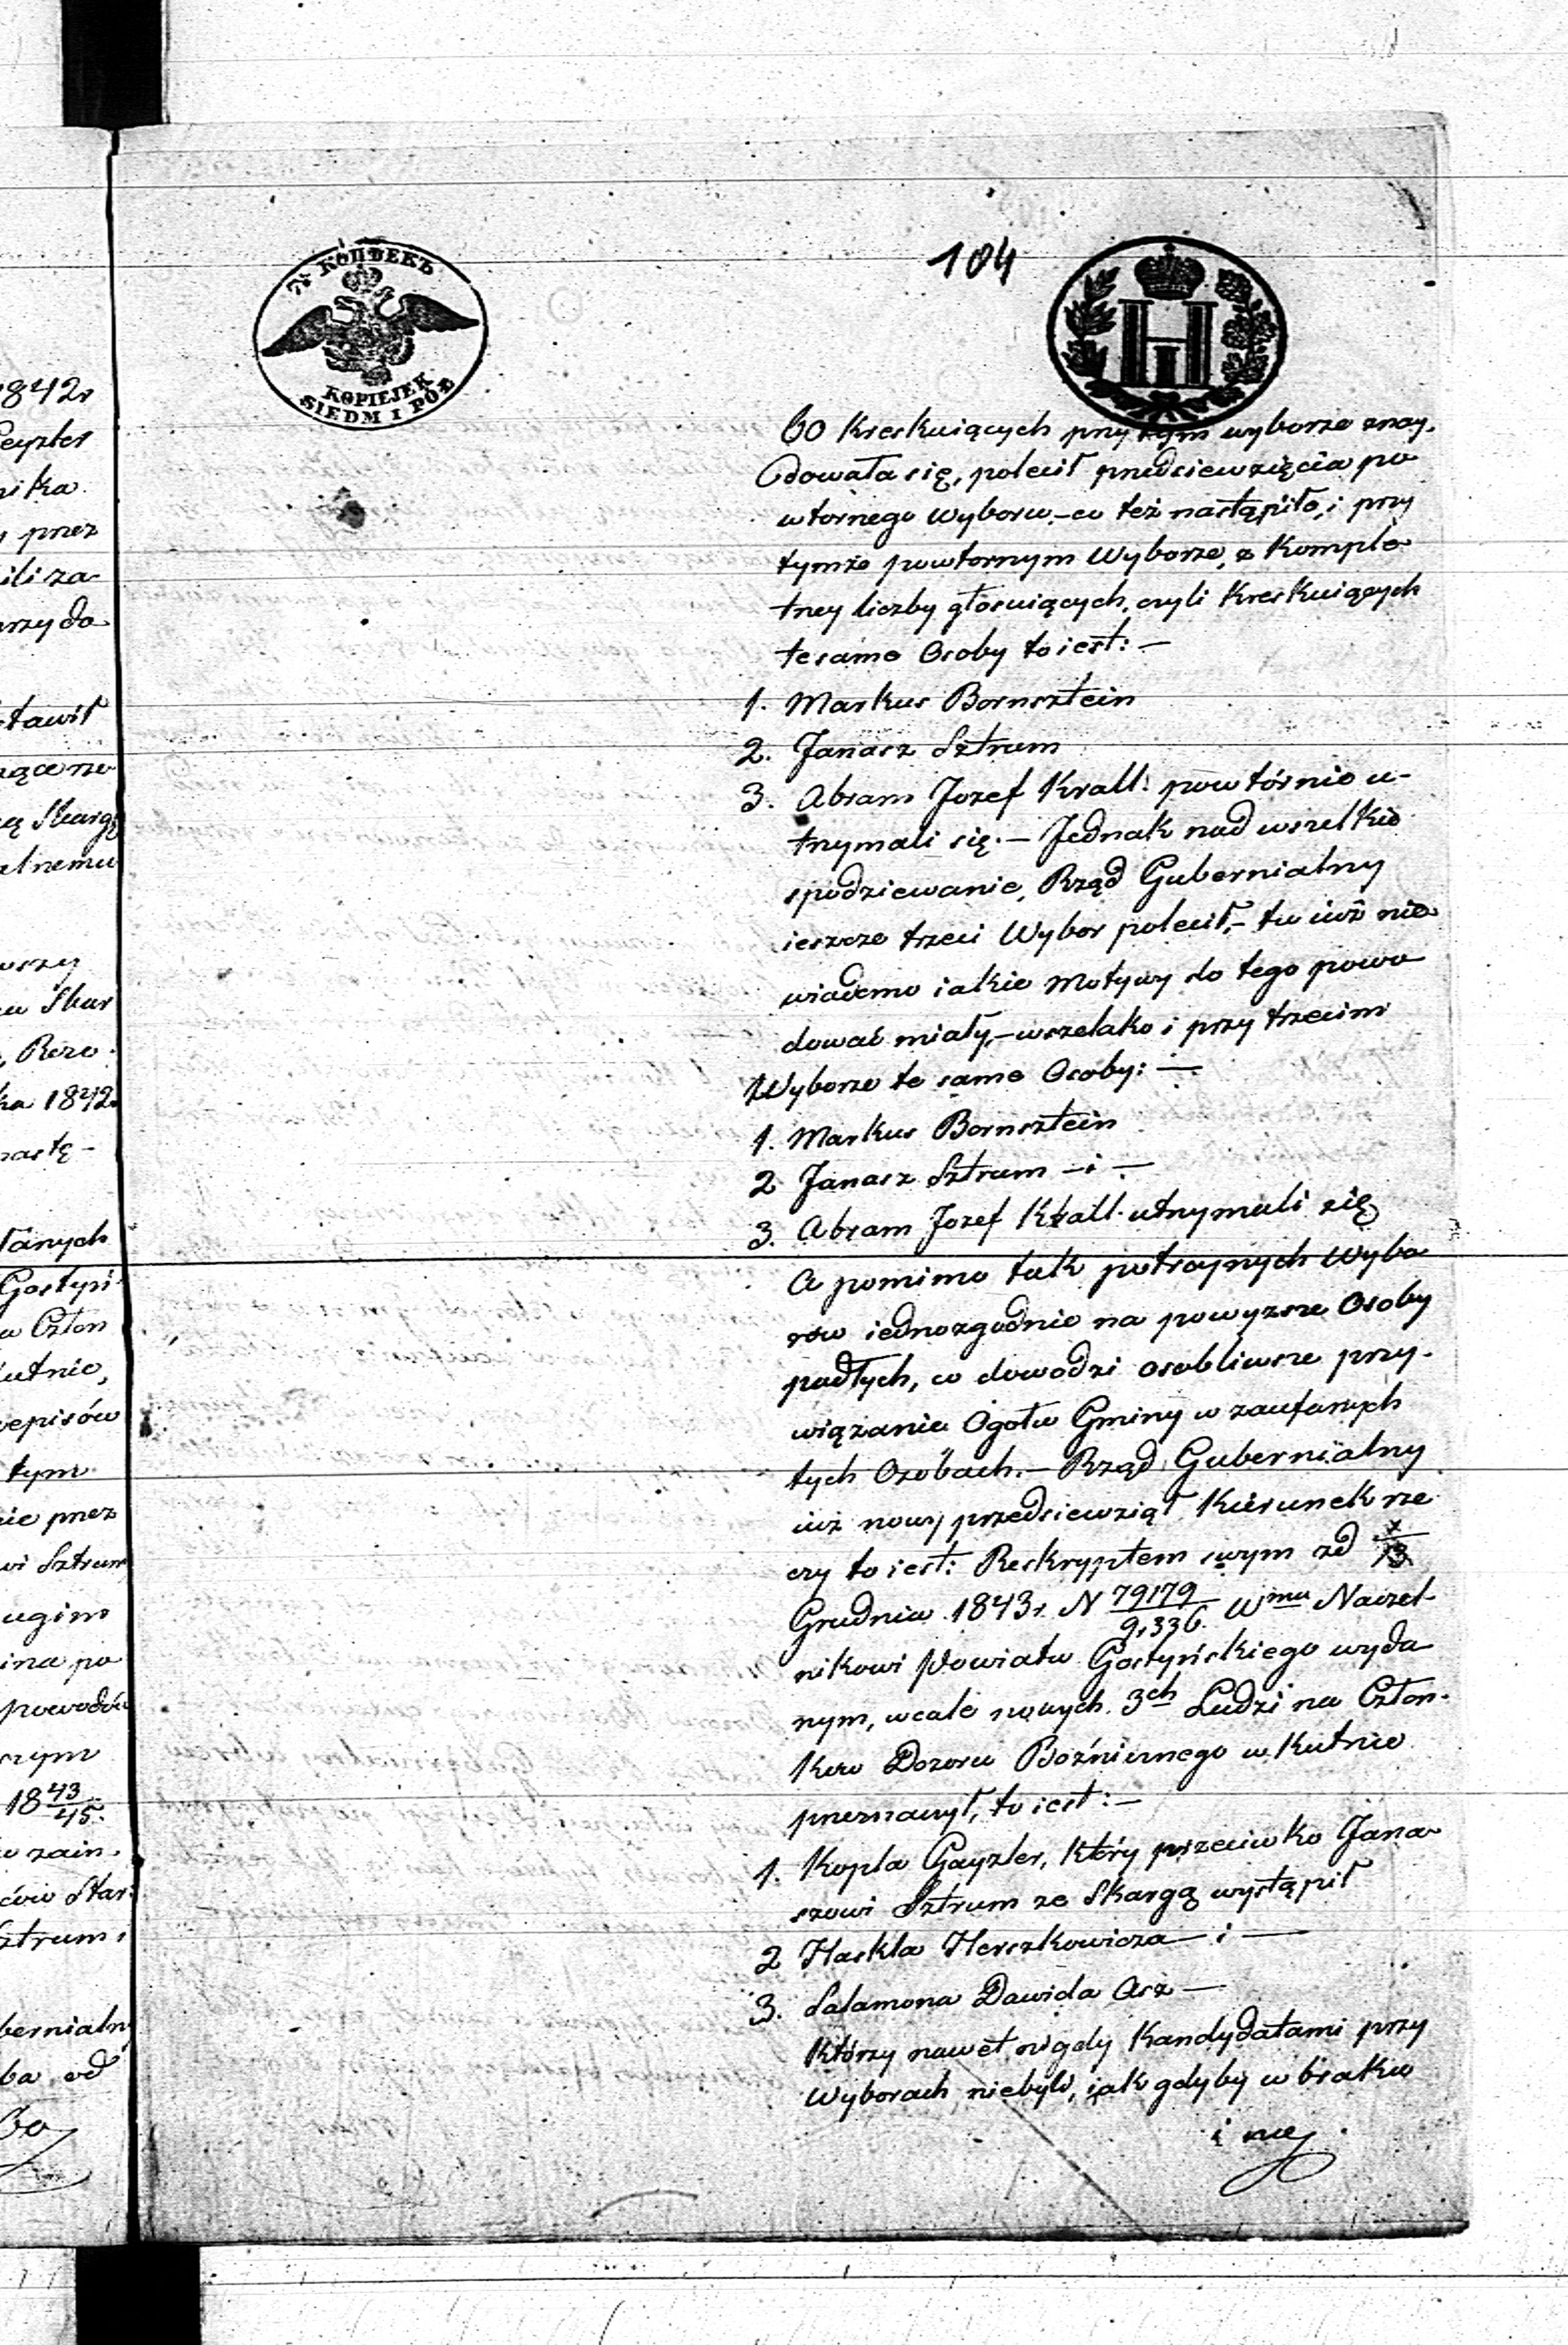 104
7½ КОПѢЕКЪ
KOPIEJEK
SIEDM I PÓŁ
60 Kreskuiących przy tym wyborze znay-
dowała się, polecił przedsiewzięcia po
wtornego Wyboru,- co też nastąpiło, i przy
tymże powtornym Wyborze, z Komple-
tney liczby głosuiących, czyli Kreskuiących
te same Osoby to iest: —
1. Markus Bornsztein
2. Janasz Sztrum
3. Abram Jozef Krall: powtórnie u-
trzymali się. — Jednak nad wszelkie
spodziewanie, Rząd Gubernialny
ieszcze trzeci Wybor polecił,- tu iuż nie
wiadomo iakie Motywy do tego powo
dować miały,- wszelako i przy trzecim
Wyborze te same Osoby: —
1. Markus Bornsztein
2 Janasz Sztrum — i —
3. Abram Jozef Krall. utrzymali się
A pomimo tak potroynych Wybo
row iednozgodnie na powyższe Osoby
padłych, co dowodzi osobliwsze przy-
wiązanie Ogołu Gminy w zaufanych
tych Osobach. — Rząd Gubernialny
iuż nowy przedsiewziął Kierunek rze
czy to iest: Reskryptem swym zd
Grudnia 1843r. N 79179/9,336. Wmu Naczel-
nikowi Powiatu Gostyńskiego wyda
nym, wcale nowych 3ch Ludzi na Człon-
kow Dozoru Bożnicznego w Kutnie
przeznaczył, to iest: —
1. Kopla Gayzler, który przeciwko Jana-
szowi Sztrum ze Skargą wystąpił
2 Haskla Herszkowicza — i —
3. Salamona Dawida Asz —
Którzy nawet nigdy Kandydatami przy
Wyborach niebyli, iak gdyby w braku
i
1842r
nika
przez
ili za-
stawił
Skargę
alnemu
ka 1842.
nastę-
Gostyń-
Człon
Kutnie,
tym
nie przez
wi Sztrum
ugim
ina po
powodów
18 43/45.
zain-
Sztrum i
bernialny
od